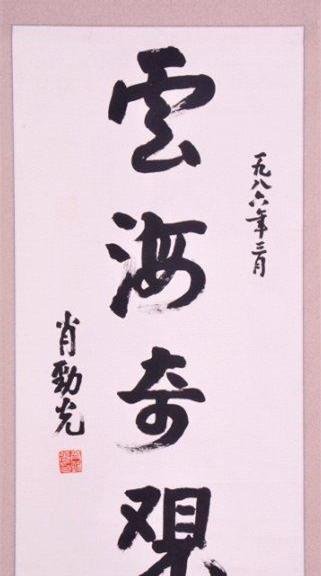 一九八六年三月
雲海奇观
肖勁光